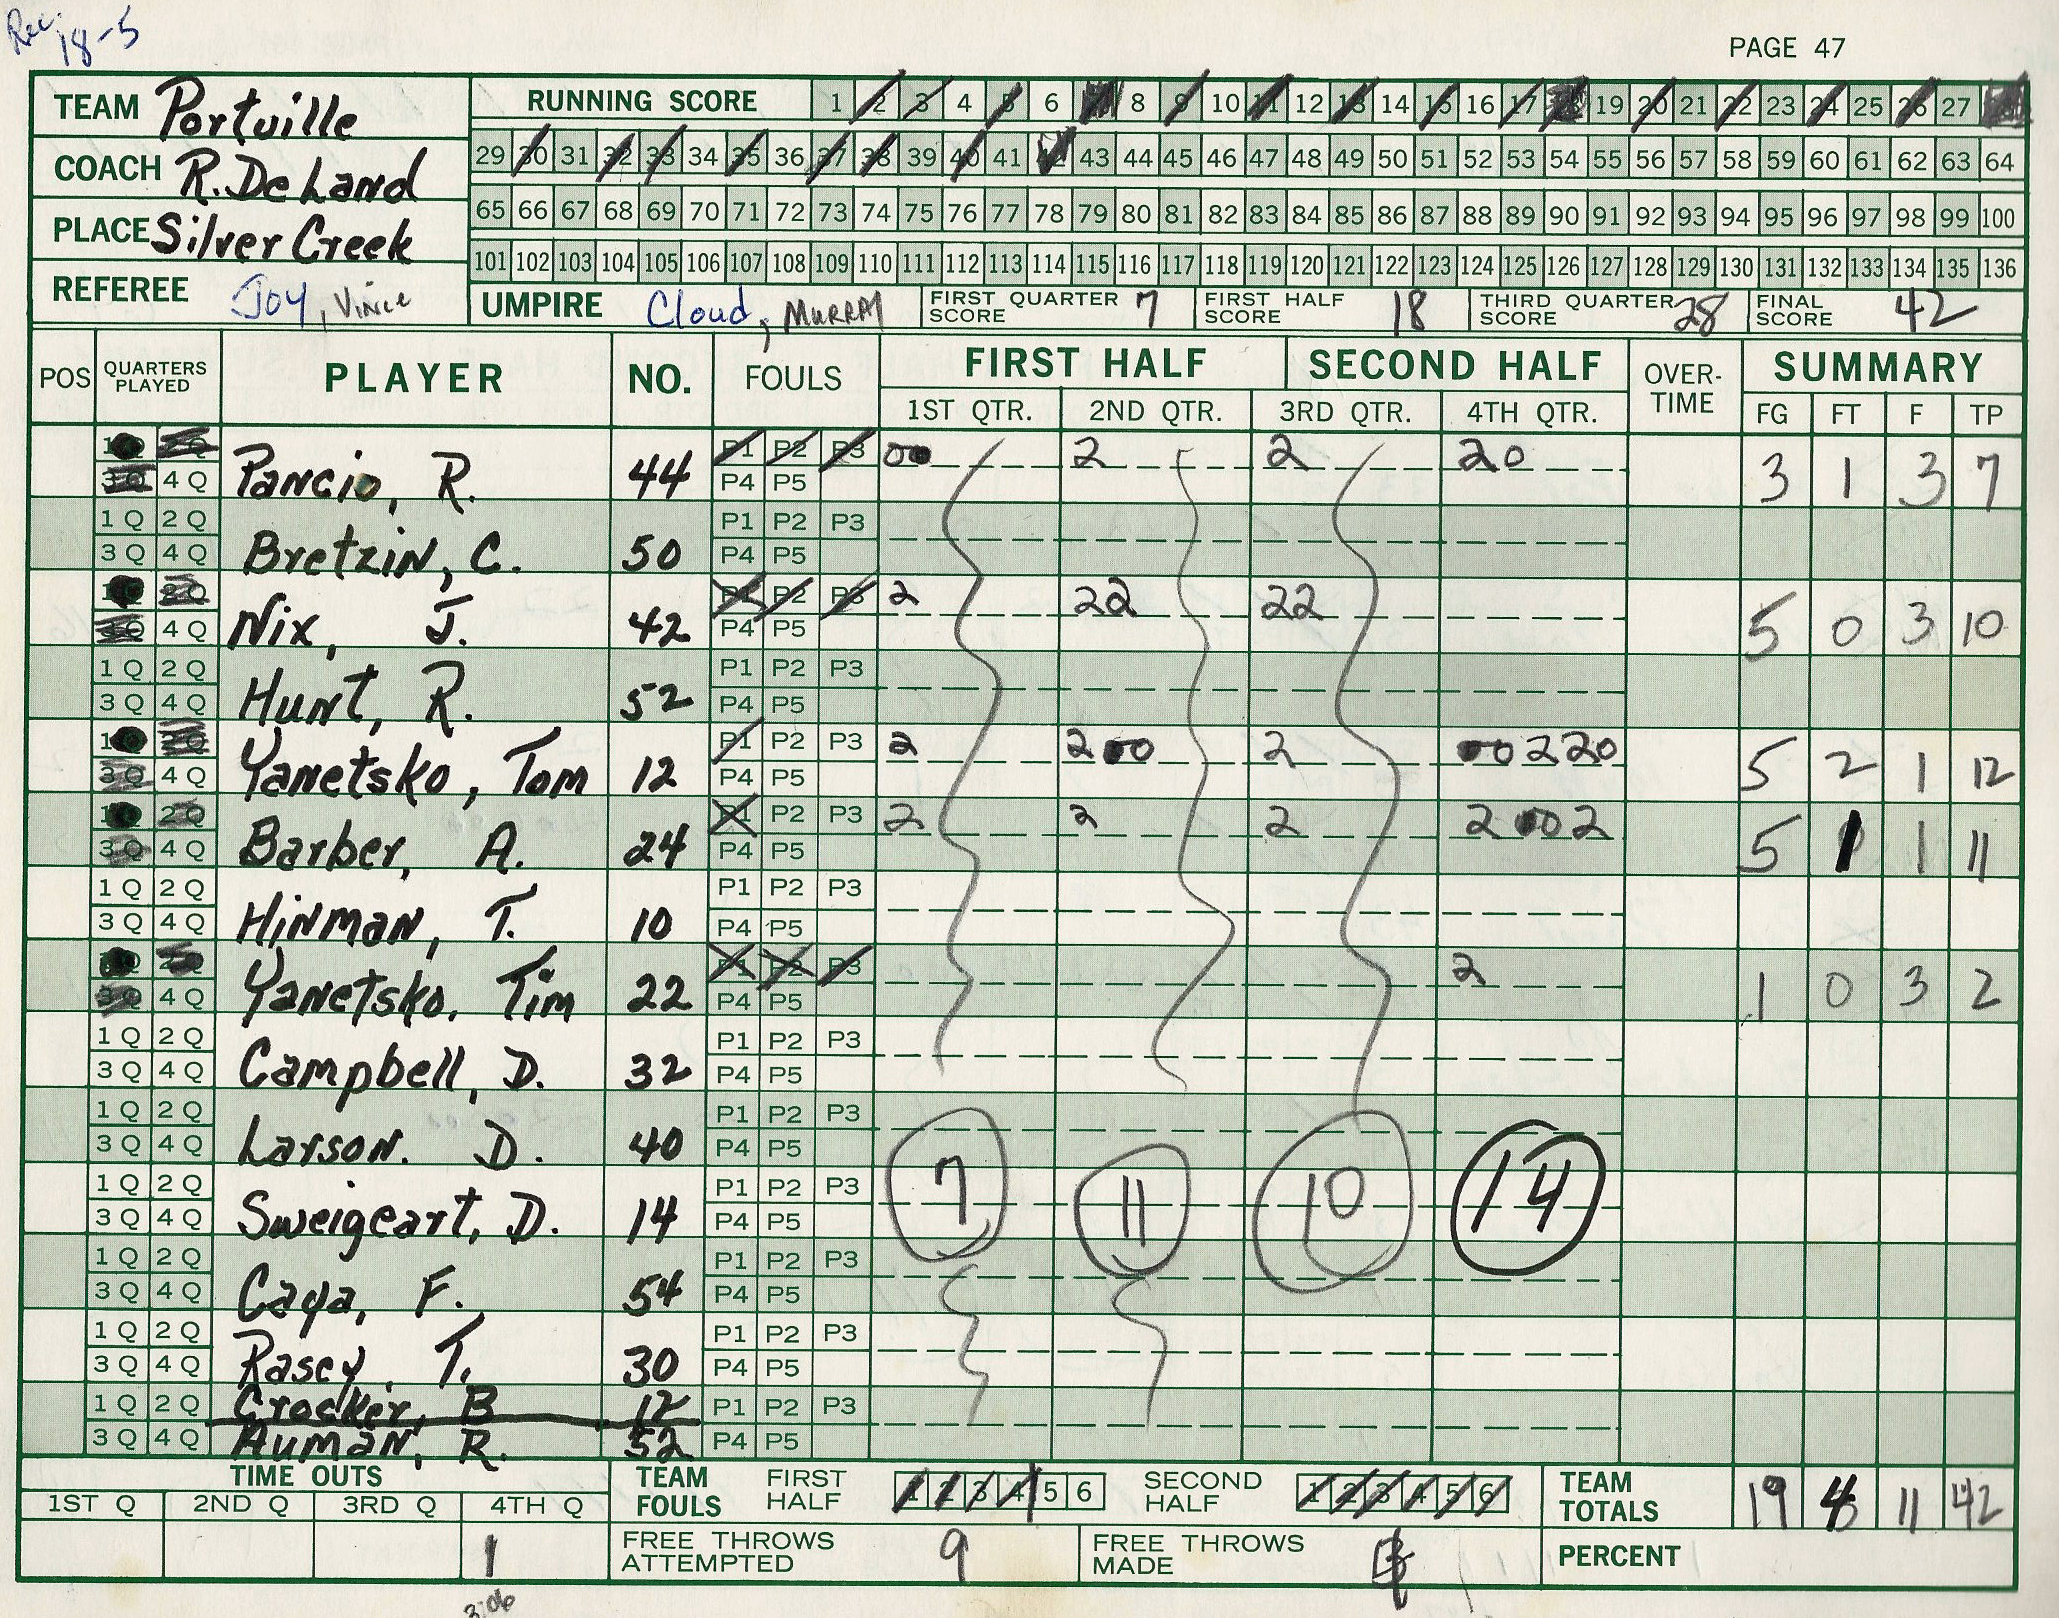 Rec. 18-5
PAGE 47
TEAM Portville
RUNNING SCORE 1 2 3 4 5 6 7 8 9 10 11 12 13 14 15 16 17 18 19 20 21 22 23 24 25 26 27
COACH R. DeLand
29 30 31 32 33 34 35 36 37 38 39 40 41 42 43 44 45 46 47 48 49 50 51 52 53 54 55 56 57 58 59 60 61 62 63 64
65 66 67 68 69 70 71 72 73 74 75 76 77 78 79 80 81 82 83 84 85 86 87 88 89 90 91 92 93 94 95 96 97 98 99 100
PLACE Silver Creek
101 102 103 104 105 106 107 108 109 110 111 112 113 114 115 116 117 118 119 120 121 122 123 124 125 126 127 128 129 130 131 132 133 134 135 136
REFEREE Joy, Vince
UMPIRE Cloud, Murray
FIRST QUARTER SCORE 7
FIRST HALF SCORE 18
THIRD QUARTER SCORE 28
FINAL SCORE 42
POS QUARTERS PLAYED PLAYER NO. FOULS FIRST HALF SECOND HALF OVER-TIME SUMMARY
1ST QTR. 2ND QTR. 3RD QTR. 4TH QTR. FG FT F TP
1Q 2Q P1 P2 P3 00 2 2 20
3Q 4Q Pancio, R. 44 P4 P5 3 1 3 7
1Q 2Q P1 P2 P3
3Q 4Q Bretzin, C. 50 P4 P5
1Q 2Q P1 P2 P3 2 22 22
3Q 4Q Nix, J. 42 P4 P5 5 0 3 10
1Q 2Q P1 P2 P3
3Q 4Q Hunt, R. 52 P4 P5
1Q 2Q P1 P2 P3 2 200 2 00220
3Q 4Q Yanetsko, Tom 12 P4 P5 5 2 1 12
1Q 2Q P1 P2 P3 2 2 2 2002
3Q 4Q Barber, A. 24 P4 P5 5 1 1 11
1Q 2Q P1 P2 P3
3Q 4Q Hinman, T. 10 P4 P5
1Q 2Q P1 P2 P3 2
3Q 4Q Yanetsko, Tim 22 P4 P5 1 0 3 2
1Q 2Q P1 P2 P3
3Q 4Q Campbell, D. 32 P4 P5
1Q 2Q P1 P2 P3
3Q 4Q Larson. D. 40 P4 P5
1Q 2Q P1 P2 P3 7 11 10 14
3Q 4Q Sweigeart, D. 14 P4 P5
1Q 2Q P1 P2 P3
3Q 4Q Caya, F. 54 P4 P5
1Q 2Q P1 P2 P3
3Q 4Q Rasey, T. 30 P4 P5
1Q 2Q Crocker, B 12 P1 P2 P3
3Q 4Q Auman, R. 52 P4 P5
TIME OUTS
1ST Q 2ND Q 3RD Q 4TH Q
1
TEAM FOULS FIRST HALF 1 2 3 4 5 6 SECOND HALF 1 2 3 4 5 6
TEAM TOTALS 19 4 11 42
FREE THROWS ATTEMPTED 9
FREE THROWS MADE
PERCENT